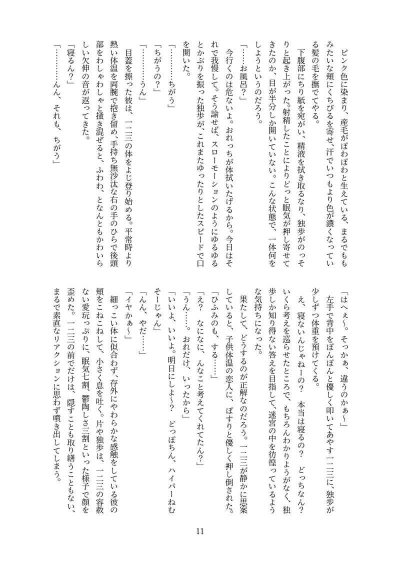 ピンク色に染まり、産毛がぽわぽわと生えている、まるでもも
みたいな頬にくちびるを寄せ、汗でいつもより色が濃くなってい
る髪の毛を撫でてやる。
下腹部にちり紙を宛がい、精液を拭き取るなり、独歩がのっそ
りと起き上がった。射精したことによりどっと眠気が押し寄せて
きたのか、目が半分しか開いていない。こんな状態で、一体何を
しようというのだろう。
「……お風呂？」
今行くのは危ないよ。おれっちが体拭いたげるから。今日はそ
れで我慢して。そう諭せば、スローモーションのようにゆるゆる
とかぶりを振った独歩が、これまたゆったりとしたスピードで口
を開いた。
「………ちがう」
「ちがうの？」
「………うん」
目蓋を擦った彼は、一二三の体をよじ登り始める。平常時より
熱い体温を両腕で抱き留め、手持ち無沙汰な右の手のひらで後頭
部をわしゃわしゃと掻き混ぜると、ふわわ、となんともかわいら
しい欠伸の音が返ってきた。
「寝るん？」
「………んん、それも、ちがう」
「はへぇ〜。そっかぁ、違うのかぁ〜」
左手で背中をぽんぽんと優しく叩いてあやす一二三に、独歩が
少しずつ体重を預けてくる。
え、寝ないんじゃねーの？　本当は寝るの？　どっちなん？
いくら考えを巡らせたところで、もちろんわかりようがなく、独
歩しか知り得ない答えを目指して、迷宮の中を彷徨っているよう
な気持ちになった。
果たして、どうするのが正解なのだろう。一二三が静かに思案
していると、子供体温の恋人に、ぽすりと優しく押し倒された。
「ひふみのも、する……」
「え？　なになに、んなこと考えてくれてたん？」
「うん……。おれだけ、いったから」
「いいよ、いいよ。明日にしよ〜？　どっぽちん、ハイパーねむ
そーじゃん」
「んん、やだ……」
「イヤかぁ〜」
細っこい体に似合わず、存外にやわらかな感触をしている彼の
頬をこねこねして、小さく息を吐く。片や独歩は、一二三の容赦
ない愛玩っぷりに、眠気七割、鬱陶しさ三割といった様子で顔を
歪めた。一二三の前でだけは、隠すことも取り繕うこともない、
まるで素直なリアクションに思わず噴き出してしまう。
11